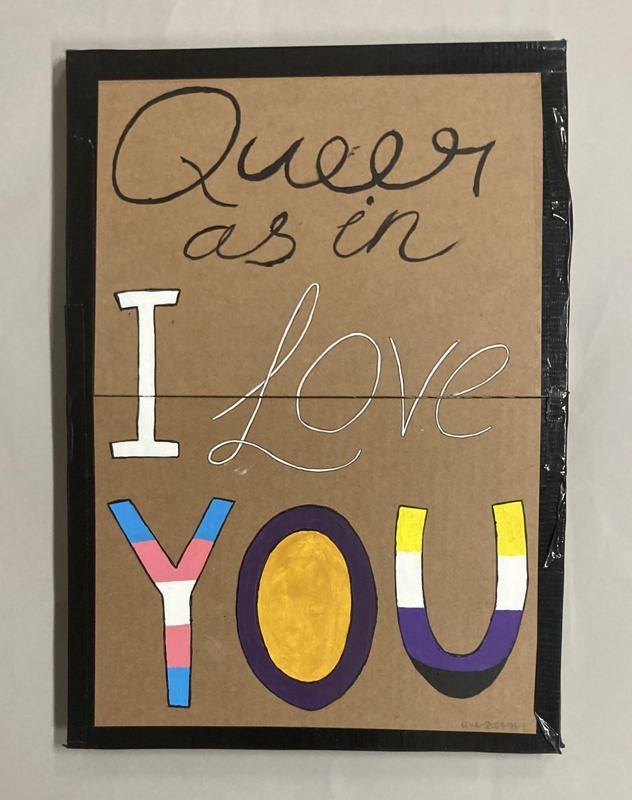 Queer
as in
I Love
YOU